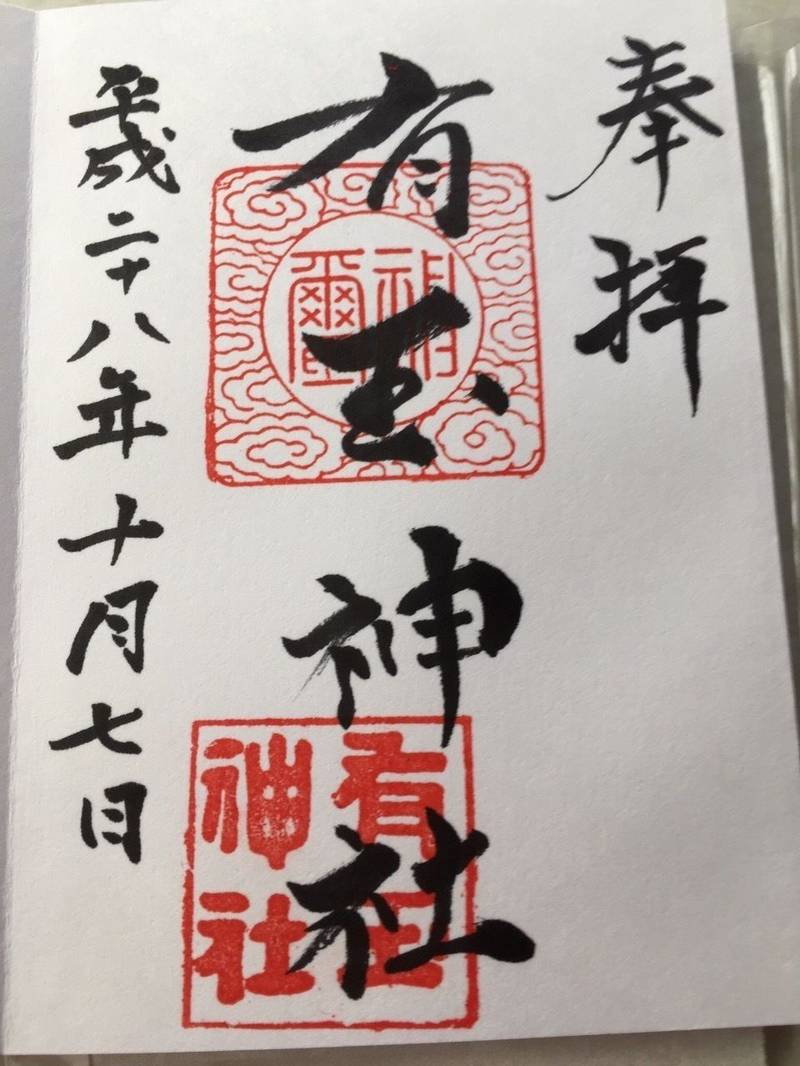 奉拝
有玉神社
神璽
有玉
神社
平成二十八年十月七日